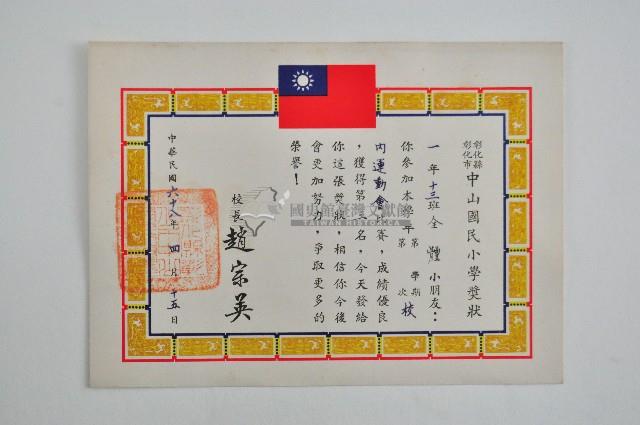 彰化縣
彰化市
中山國民小學獎狀
一年十三班全體小朋友：
你參加本學年第 學期 次校
內運動會 賽，成績優良
，獲得第 名，今天發給
你這張獎狀，相信你今後
會更加努力，爭取更多的
榮譽！
校長 趙宗英
中華民國六十八年 四月 十五日
國史館臺灣文獻館
TAIWAN HISTORICA